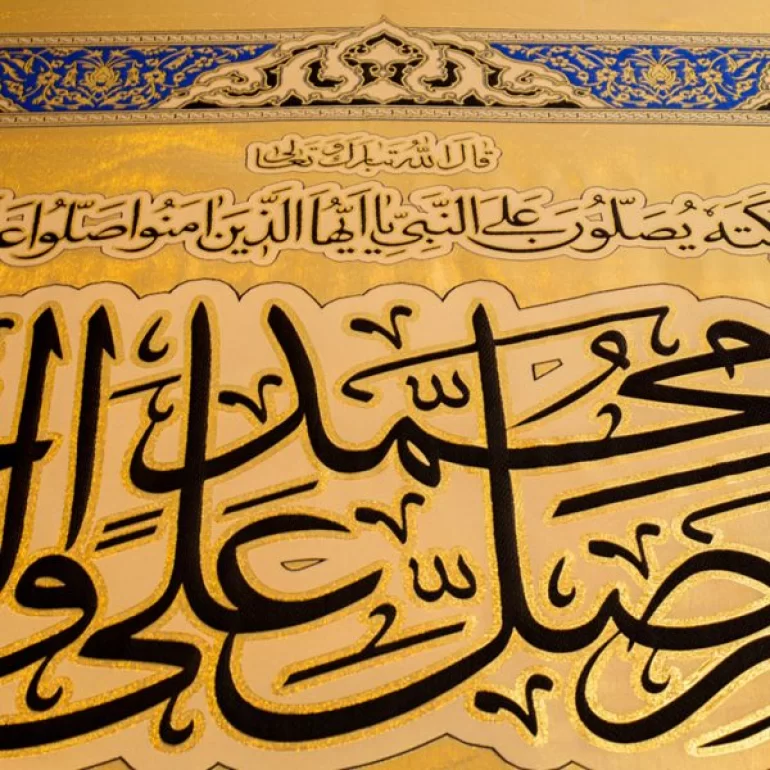 قَالَ اللهُ تَبَارَكَ وَتَعَالَىٰ
يُصَلُّونَ عَلَى النَّبِيِّ يَا اَيُّهَا الَّذِينَ اٰمَنُوا صَلُّوا
صَلِّ عَلَى مُحَمَّدٍ